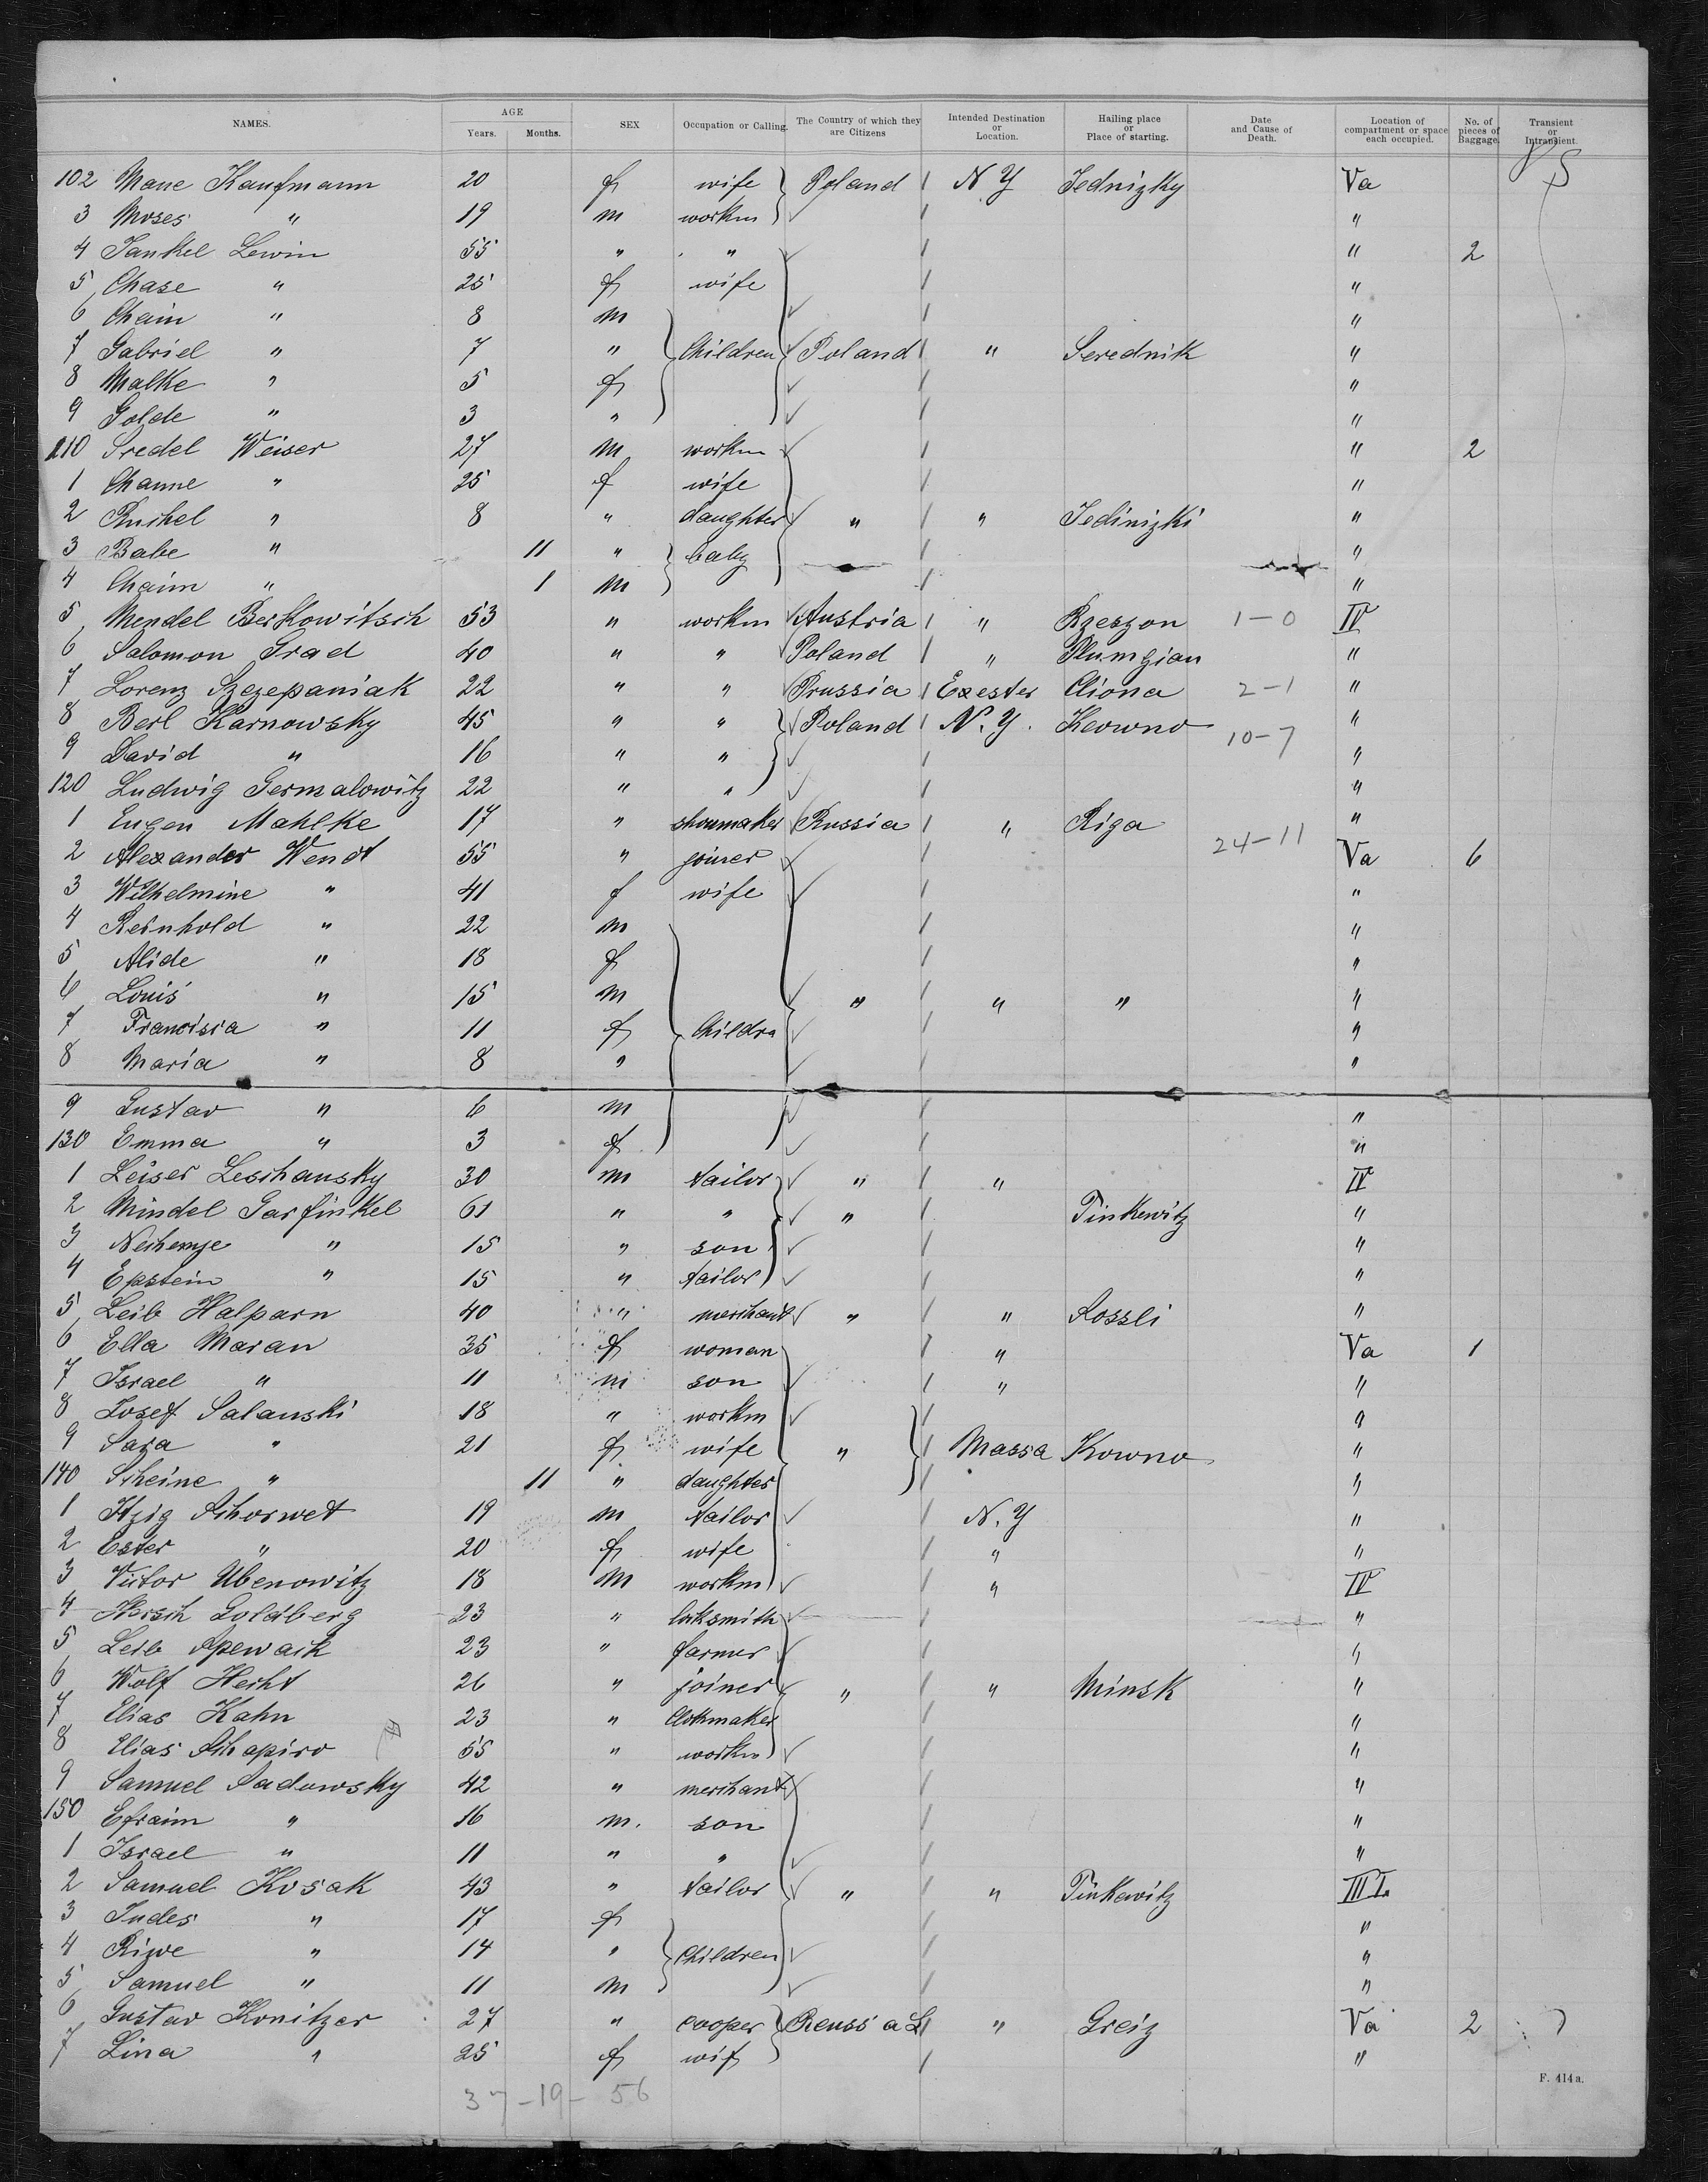 NAMES. AGE Years. Months. SEX Occupation or Calling. The Country of which they are Citizens Intended Destination or Location. Hailing place or Place of starting. Date and Cause of Death. Location of compartment or space each occupied. No. of pieces of Baggage. Transient or Intransient.
102 Mane Kaufmann 20 f wife Poland N Y Jednizky Va
3 Moses " 19 m workm "
4 Jankel Lewin 55 " " " 2
5 Chase " 25 f wife "
6 Chaim " 8 m "
7 Gabriel " 7 " Children Poland " Serednik "
8 Malke " 5 f "
9 Golde " 3 " "
110 Sredel Weiser 27 m workm " 2
1 Channe " 25 f wife "
2 Ruchel " 8 " daughter " " Jedinizki "
3 Babe " 11 " baby "
4 Chaim " 1 m "
5 Mendel Berkowitsch 53 " workm Austria " Rzeszon 1-0 IV
6 Salomon Grad 40 " " Poland " Plumgian "
7 Lorenz Szczepaniak 22 " " Prussia Exester Cliona 2-1 "
8 Berl Karnowsky 45 " " Poland N. Y. Keowno 10-7 "
9 David " 16 " " "
120 Ludwig Germalowitz 22 " " "
1 Eugen Mahlke 17 " shoemaker Russia " Riga 24-11 "
2 Alexander Wendt 55 " joiner Va 6
3 Wilhelmine " 41 f wife "
4 Reinhold " 22 m "
5 Alide " 18 f "
6 Louis " 15 m " " " "
7 Francisca " 11 f Childrn "
8 Maria " 8 " "
9 Gustav " 6 m "
130 Emma " 3 f "
1 Leiser Leschansky 30 m tailor " " IV
2 Mindel Garfinkel 61 " " " Tinkewitz "
3 Nechemje " 15 " son "
4 Epstein " 15 " tailor "
5 Leib Halparn 40 " merchant " " Rossli "
6 Ella Maran 35 f woman " Va 1
7 Israel " 11 m son " "
8 Josef Salanski 18 " workm "
9 Sara " 21 f wife " Massa Kowno "
140 Scheine " 11 " daughter "
1 Itzig Schorwet 19 m tailor N. Y "
2 Ester " 20 f wife " "
3 Victor Ubenowitz 18 m workm " IV
4 Hersch Goldberg 23 " locksmith "
5 Leib Spewack 23 " farmer "
6 Wolf Hecht 26 " joiner " " Minsk "
7 Elias Kahn 23 " Clockmaker "
8 Elias Schapiro 55 " workm "
9 Samuel Sadowsky 42 " merchant "
150 Efraim " 16 m. son "
1 Israel " 11 " " "
2 Samuel Kosak 43 " tailor " " Tinkewitz III I.
3 Judes " 17 f "
4 Riwe " 14 " Children "
5 Samuel " 11 m "
6 Gustav Konitzer 27 " cooper Reuss a L " Greiz Va 2
7 Lina " 25 f wif "
37-19-56
F. 414a.